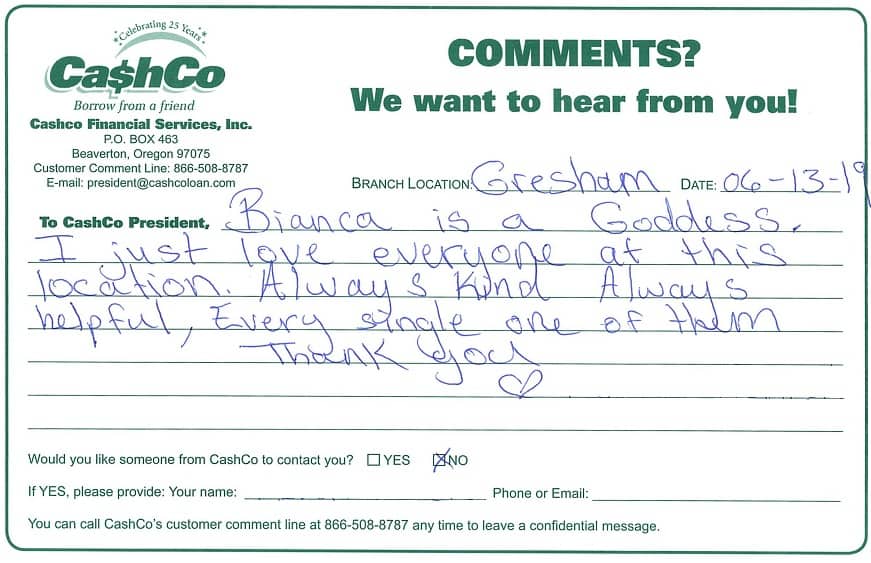 Celebrating 25 Years
Ca$hCo
Borrow from a friend
Cashco Financial Services, Inc.
P.O. BOX 463
Beaverton, Oregon 97075
Customer Comment Line: 866-508-8787
E-mail: president@cashcoloan.com
COMMENTS?
We want to hear from you!
BRANCH LOCATION: Gresham DATE: 06-13-19
To CashCo President, Bianca is a Goddess.
I just love everyone at this
location. Always Kind Always
helpful, Every single one of them
Thank You
Would you like someone from CashCo to contact you? YES NO
If YES, please provide: Your name: Phone or Email:
You can call CashCo's customer comment line at 866-508-8787 any time to leave a confidential message.